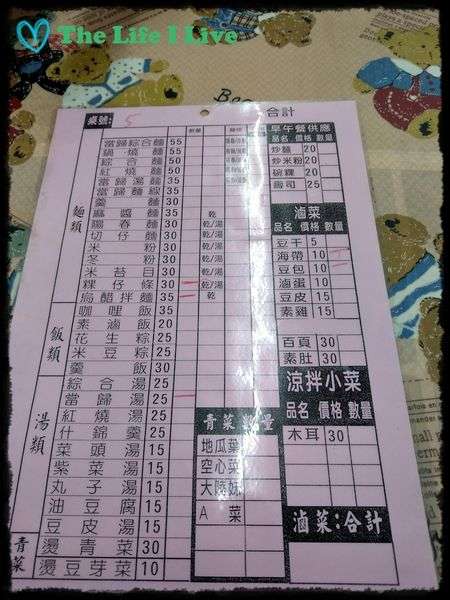 The Life I Live
Be
桌號: 5
合計
數量
麵類
當歸綜合麵 55
鍋燒麵 55
綜合麵 50
紅燒麵 50
當歸湯麵 35
當歸麵線 35
羹麵 30
麻醬麵 35 乾
陽春麵 30 乾/湯
切仔麵 30 乾/湯
米粉 30 乾/湯
冬粉 30 乾/湯
米苔目 30 乾/湯
粿仔條 30 乾/湯
烏醋拌麵 35 乾
飯類
咖哩飯 35
素滷飯 20
花生粽 25
米豆粽 25
羹飯 30
湯類
綜合湯 25
當歸湯 25
紅燒湯 25
什錦羹 25
菜頭湯 15
紫菜湯 15
丸子湯 15
油豆腐 15
豆皮湯 15
青菜
燙青菜 30
燙豆芽菜 10
青菜 數量
地瓜葉
空心菜
大陸妹
A菜
早午餐供應
品名 價格 數量
炒麵 20
炒米粉 20
碗粿 20
壽司 25
滷菜
品名 價格 數量
豆干 5
海帶 10
豆包 10
滷蛋 10
豆皮 15
素雞 15
百頁 30
素肚 30
涼拌小菜
品名 價格 數量
木耳 30
滷菜:合計